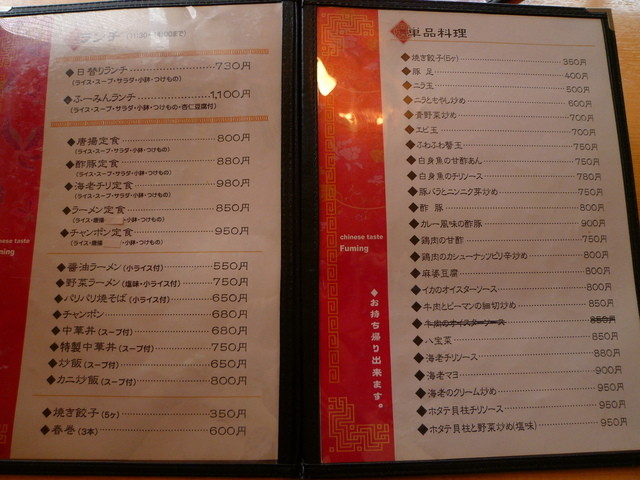 ランチ (11:30~14:00まで)
◆日替りランチ 730円
(ライス・スープ・サラダ・小鉢・つけもの)
◆ふーみんランチ 1,100円
(ライス・スープ・サラダ・小鉢・つけもの・杏仁豆腐付)
◆唐揚定食 800円
(ライス・スープ・サラダ・小鉢・つけもの)
◆酢豚定食 880円
(ライス・スープ・サラダ・小鉢・つけもの)
◆海老チリ定食 980円
(ライス・スープ・サラダ・小鉢・つけもの)
◆ラーメン定食 850円
(ライス・唐揚 ・小鉢・つけもの)
◆チャンポン定食 950円
(ライス・唐揚 ・小鉢・つけもの)
◆醤油ラーメン(小ライス付) 550円
◆野菜ラーメン(塩味・小ライス付) 750円
◆パリパリ焼そば(小ライス付) 650円
◆チャンポン 680円
◆中華丼(スープ付) 680円
◆特製中華丼(スープ付) 750円
◆炒飯(スープ付) 650円
◆カニ炒飯(スープ付) 800円
◆焼き餃子(5ヶ) 350円
◆春巻(3本) 600円
chinese taste
Fuming
単品料理
◆焼き餃子(5ヶ) 350円
◆豚足 400円
◆ニラ玉 500円
◆ニラともやし炒め 600円
◆青野菜炒め 700円
◆エビ玉 700円
◆ふわふわ蟹玉 750円
◆白身魚の甘酢あん 750円
◆白身魚のチリソース 780円
◆豚バラとニンニク芽炒め 750円
◆酢豚 800円
◆カレー風味の酢豚 900円
◆鶏肉の甘酢 750円
◆鶏肉のカシューナッツピリ辛炒め 800円
◆麻婆豆腐 800円
◆イカのオイスターソース 800円
◆牛肉とピーマンの細切炒め 850円
◆牛肉のオイスターソース 850円
◆八宝菜 850円
◆海老チリソース 880円
◆海老マヨ 900円
◆海老のクリーム炒め 950円
◆ホタテ貝柱チリソース 950円
◆ホタテ貝柱と野菜炒め(塩味) 950円
chinese taste
Fuming
◆お持ち帰り出来ます。